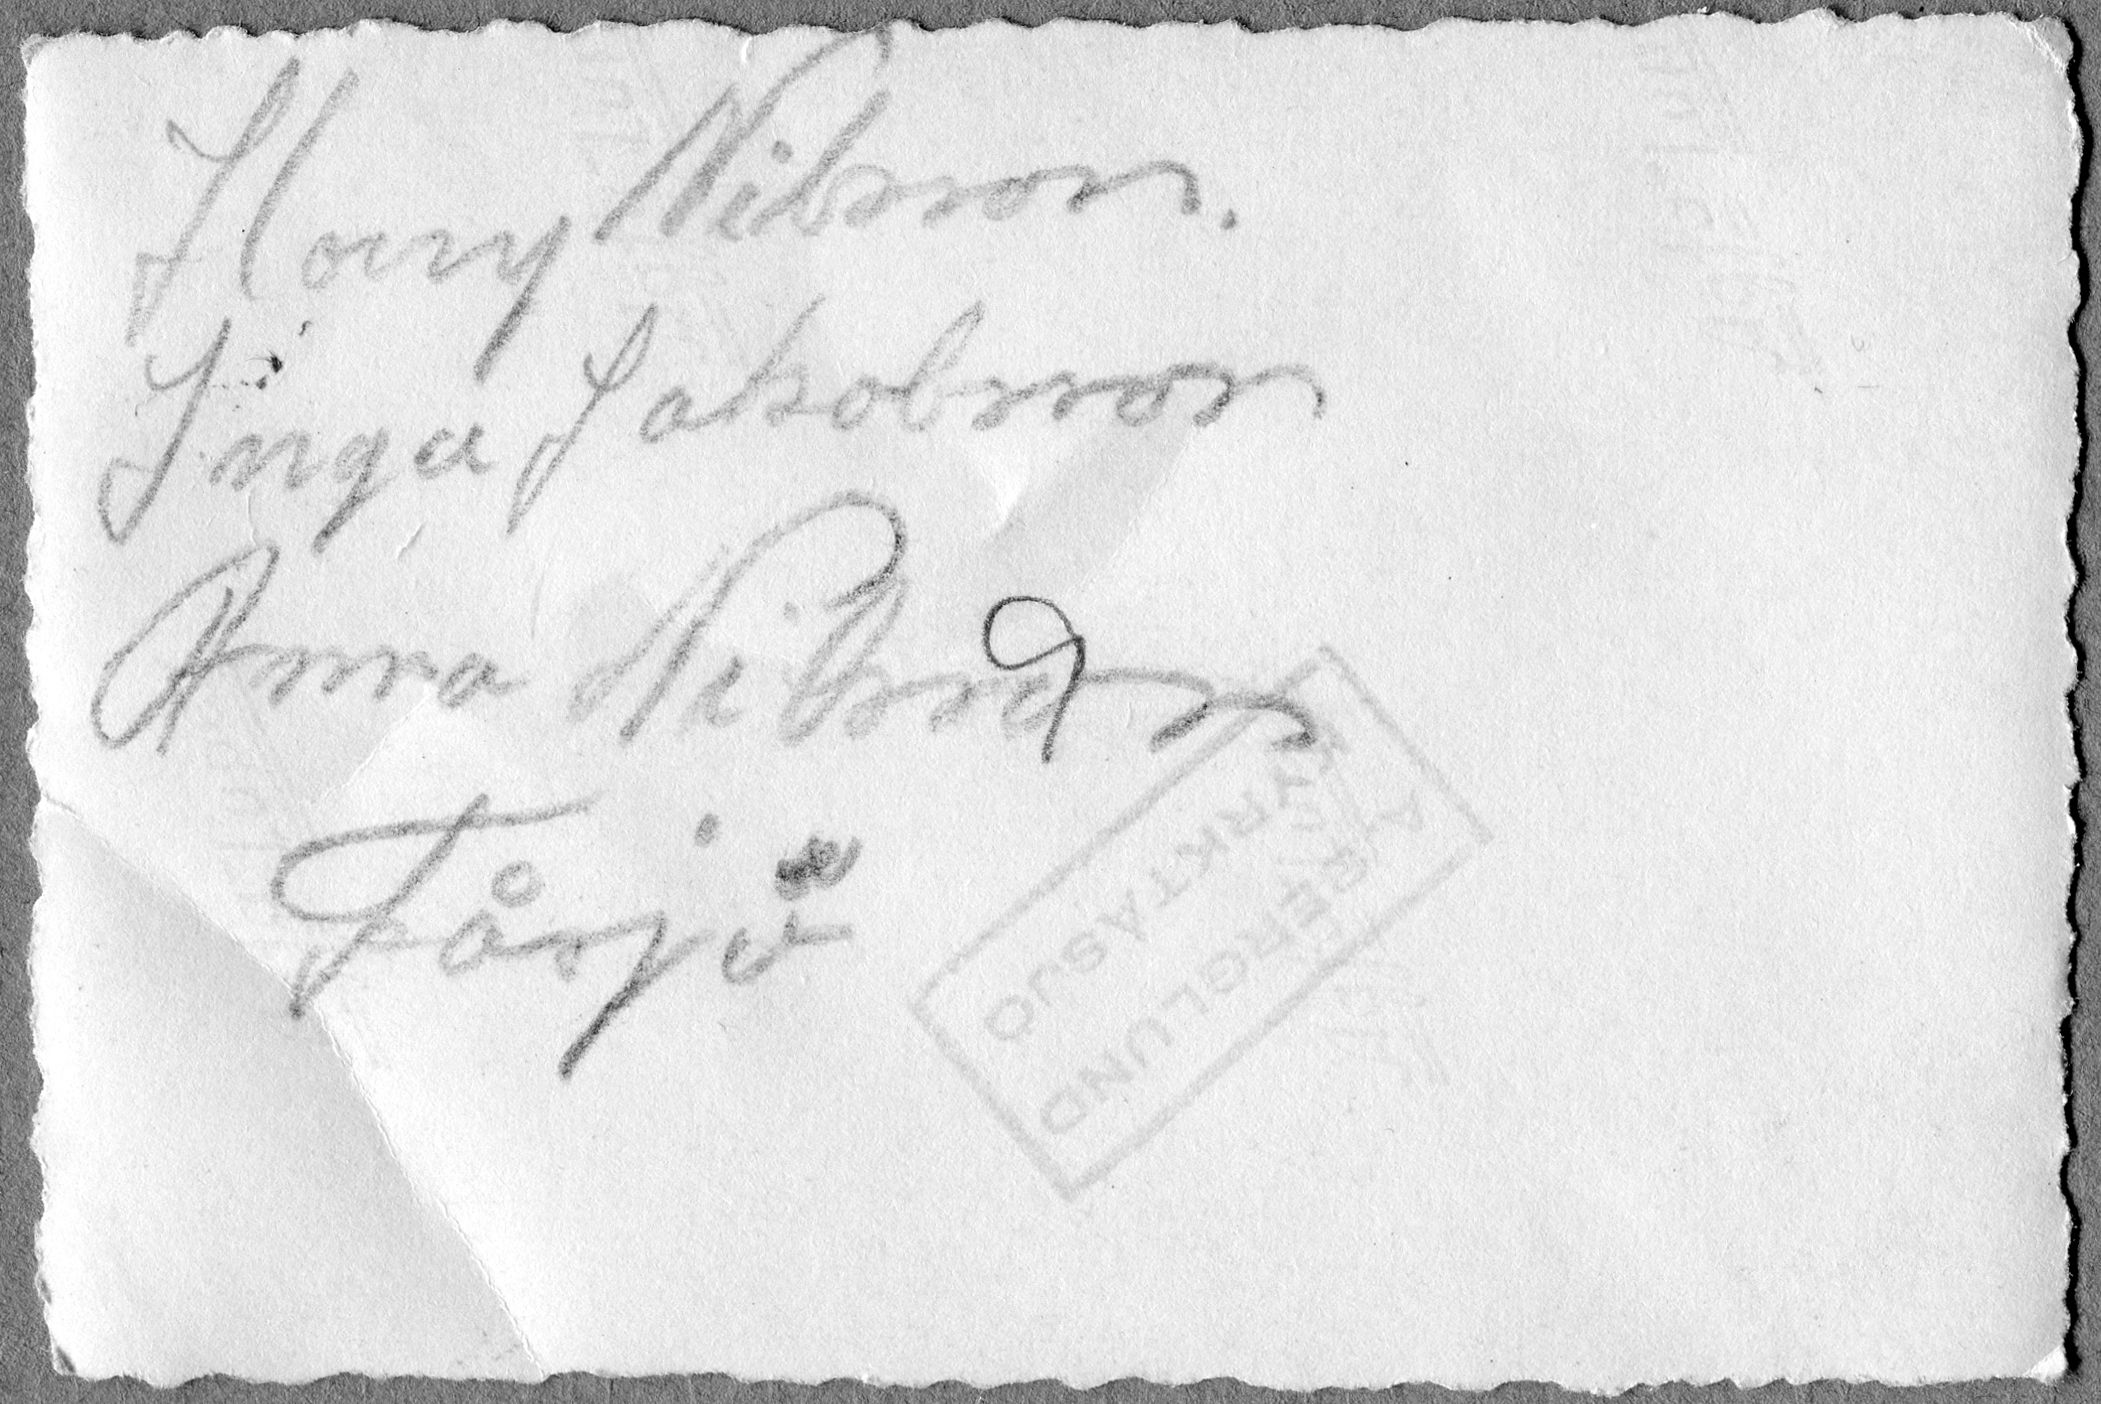 Harry Nilsson.
Inga Jakobsson
Anna Nilsson
Tåsjö
A. BERGLUND
KYRKTÅSJÖ